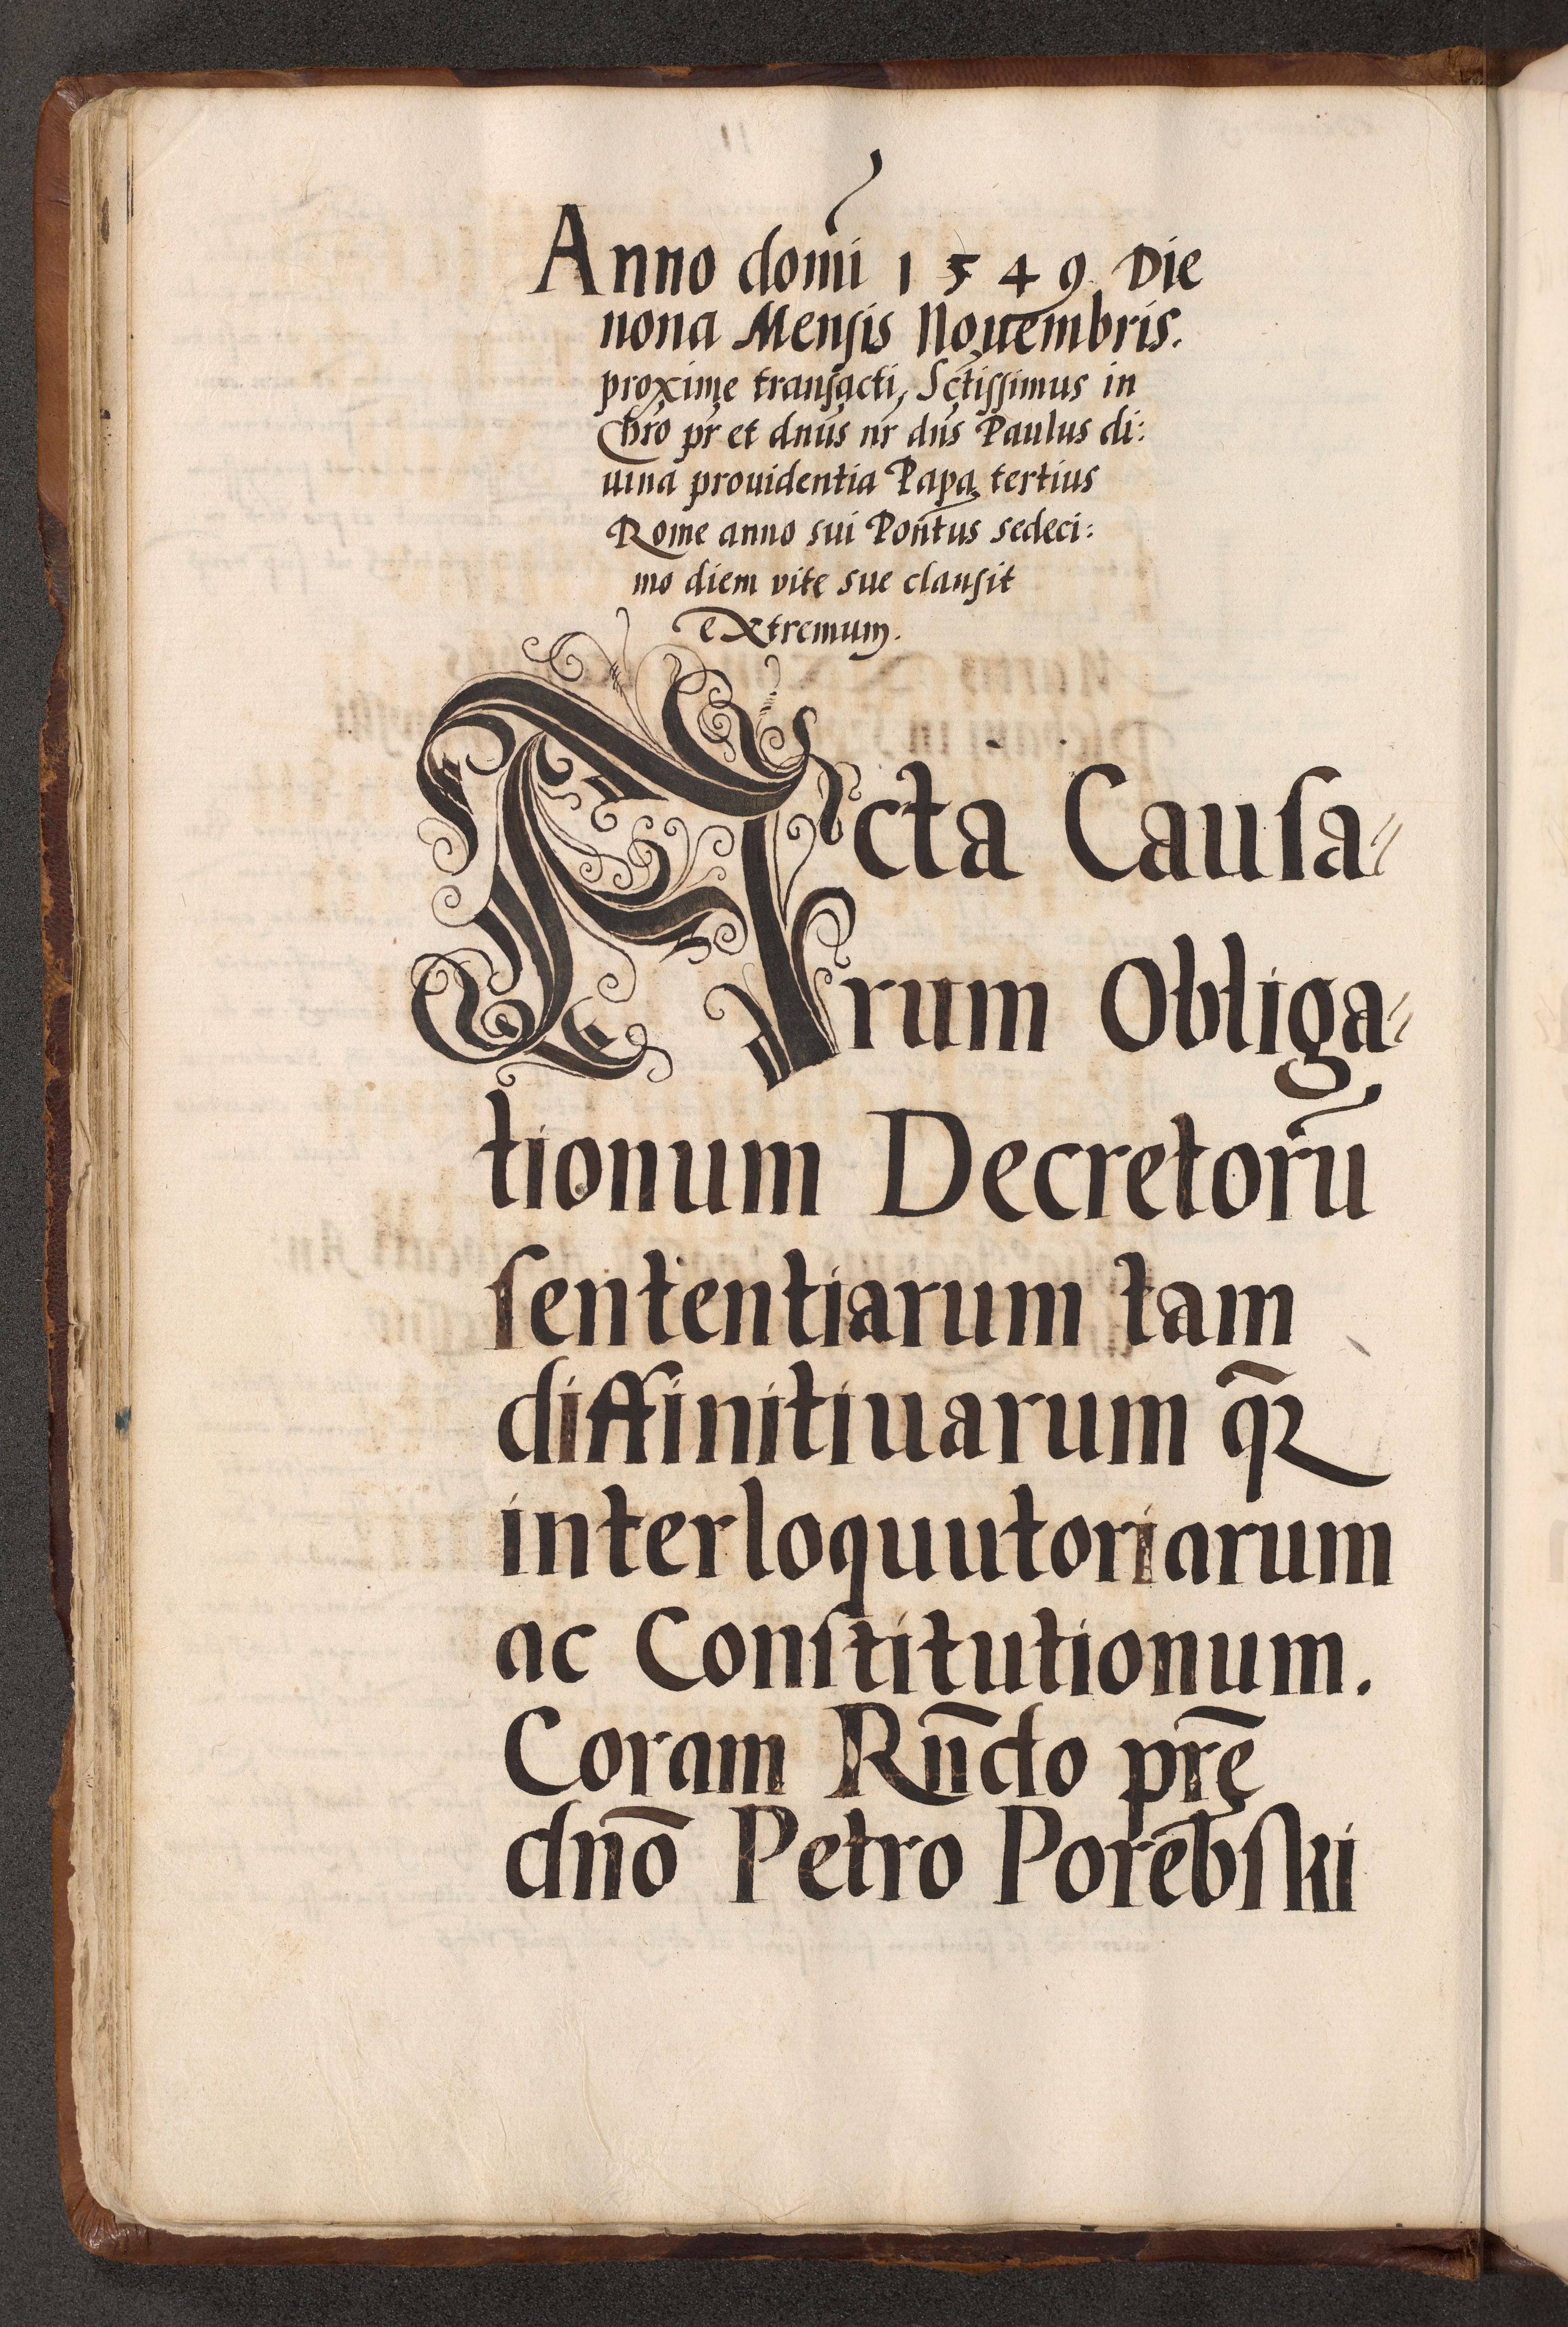 Anno domı̄ni 1549. Die
nona Mensis Nouembris.
proxime transacti, Sctissimus in
Chro pr et dnus nr dns Paulus di:
uina prouidentia Papa tertius
Rome anno sui Pontus sedeci:
mo diem vite sue clausit
eXtremum.
Acta Causa-
rum Obliga-
tionum Decretorū
sententiarum tam
diffinitiuarum qꝫ
interloquutoriarum
ac Constitutionum.
Coram Rn̄do prē
dnō Petro Porębski